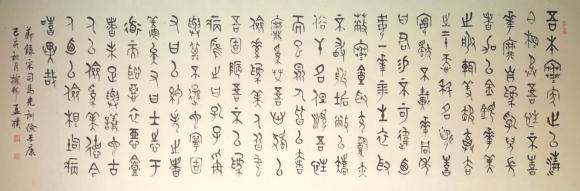 吾本寒家世以清
白相承吾性不喜
華靡自為乳兒長
者加以金銀華美
之服輒羞赧棄去
之二十忝科名聞喜
宴獨不戴花同年
曰君賜不可違也
乃簪一花平生衣取
蔽寒食取充腹亦
不敢服垢弊以矯
俗干名但順吾性
而已眾人皆以奢
靡為榮吾心獨以
儉素為美人皆嗤
吾固陋吾不以為
病應之曰孔子稱
與其不遜也寧固
又曰以約失之者
鮮矣又曰士志於
道而恥惡衣惡食
者未足與議也古
人以儉為美德今
人乃以儉相詬病
嘻異哉
節錄宋司馬光訓儉示康
己亥秋月